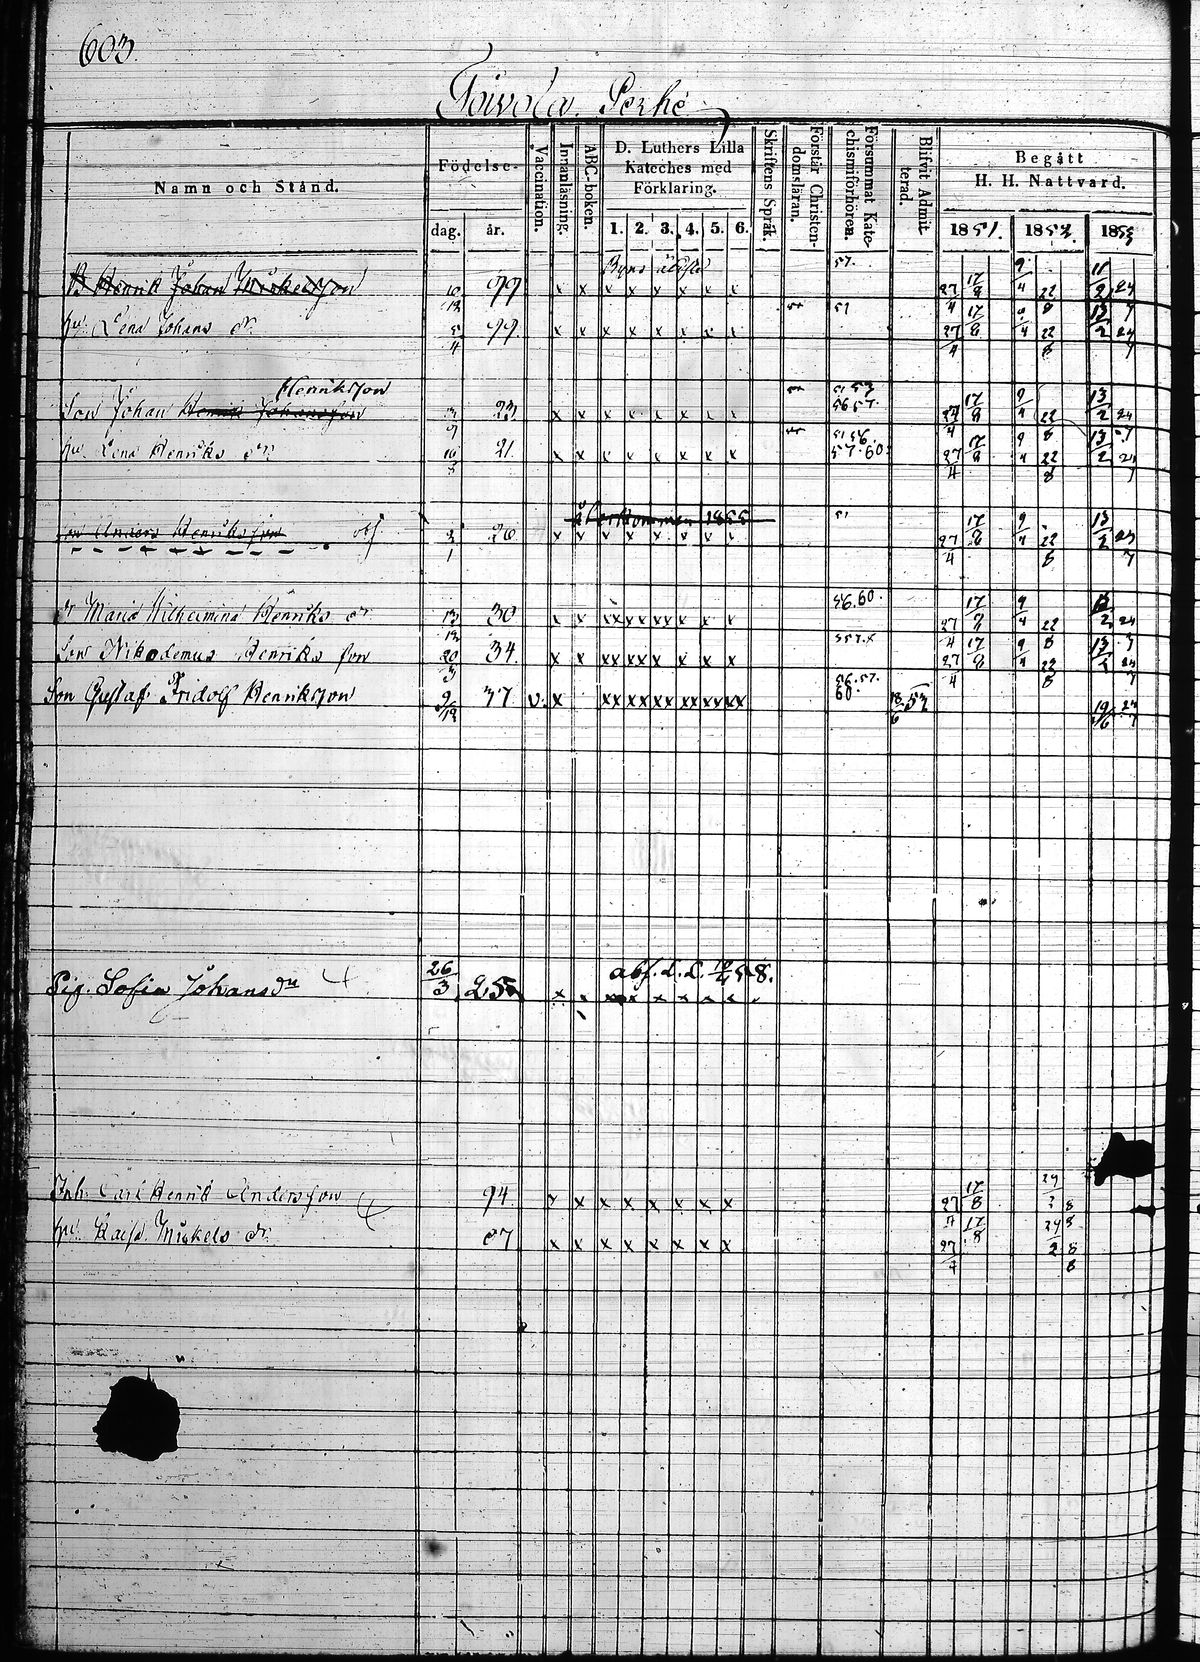 603.
Toivola. Perhe
Namn och Stånd.
Födelse-
dag. år.
Vaccination.
Innanläsning.
ABC-boken.
D. Luthers Lilla
Kateches med
Förklaring.
1. 2. 3. 4. 5. 6.
Skriftens Språk.
Förstår Christen-
domsläran.
Försummat Kate-
chismiförhören.
Blifvit Admit-
terad.
Begått
H. H. Nattvard.
1851. 1852. 1853
Henrik Johan Mickelsson 10/12 99 x x x x x x x x 57. 27/4 17/8 9/4 22/8
hu. Lena Johans dr 5/4 99. x x x x x x x x 51 27/4 17/8 9/4 22/8 13/2 24/7
Henriksson
Son Johan Henrik Johansson 3/9 23 x x x x x x x x 51 53 56 57. 27/4 17/8 9/4 22/8 13/2 24/7
hu. Lena Henriks dr 10/8 21. x x x x x x x x 51 56. 57. 60. 27/4 17/8 9/4 22/8 13/2 24/7
Återkommen 1855
son Anders Henriksson 2/1 26 x x x x x x x x 51 27/4 17/8 9/4 22/8 13/2 23/7
dr Maria Wilhelmina Henriks dr 13/12 30 x x xx xx xx x x x 56. 60. 27/4 17/8 9/4 22/8 13/2 24/7
Son Nikodemus Henriks son 20/3 34. x x xx xx x x x x 27/4 17/8 9/4 22/8 13/2 24/7
Son Gustaf Fridolf Henriksson 9/12 37 v. x xx xx xx xx xx xx 56. 57. 60. 18/6 53 19/6 24/7
Pig. Sofia Johansdr 26/3 25 abs. d. L. 18/4 58.
Inh. Carl Henrik Andersson 94. x x x x x x x x 27/4 17/8
hu. Kaisa Mickels dr 87 x x x x x x x x 27/4 17/8 24/2 8/8